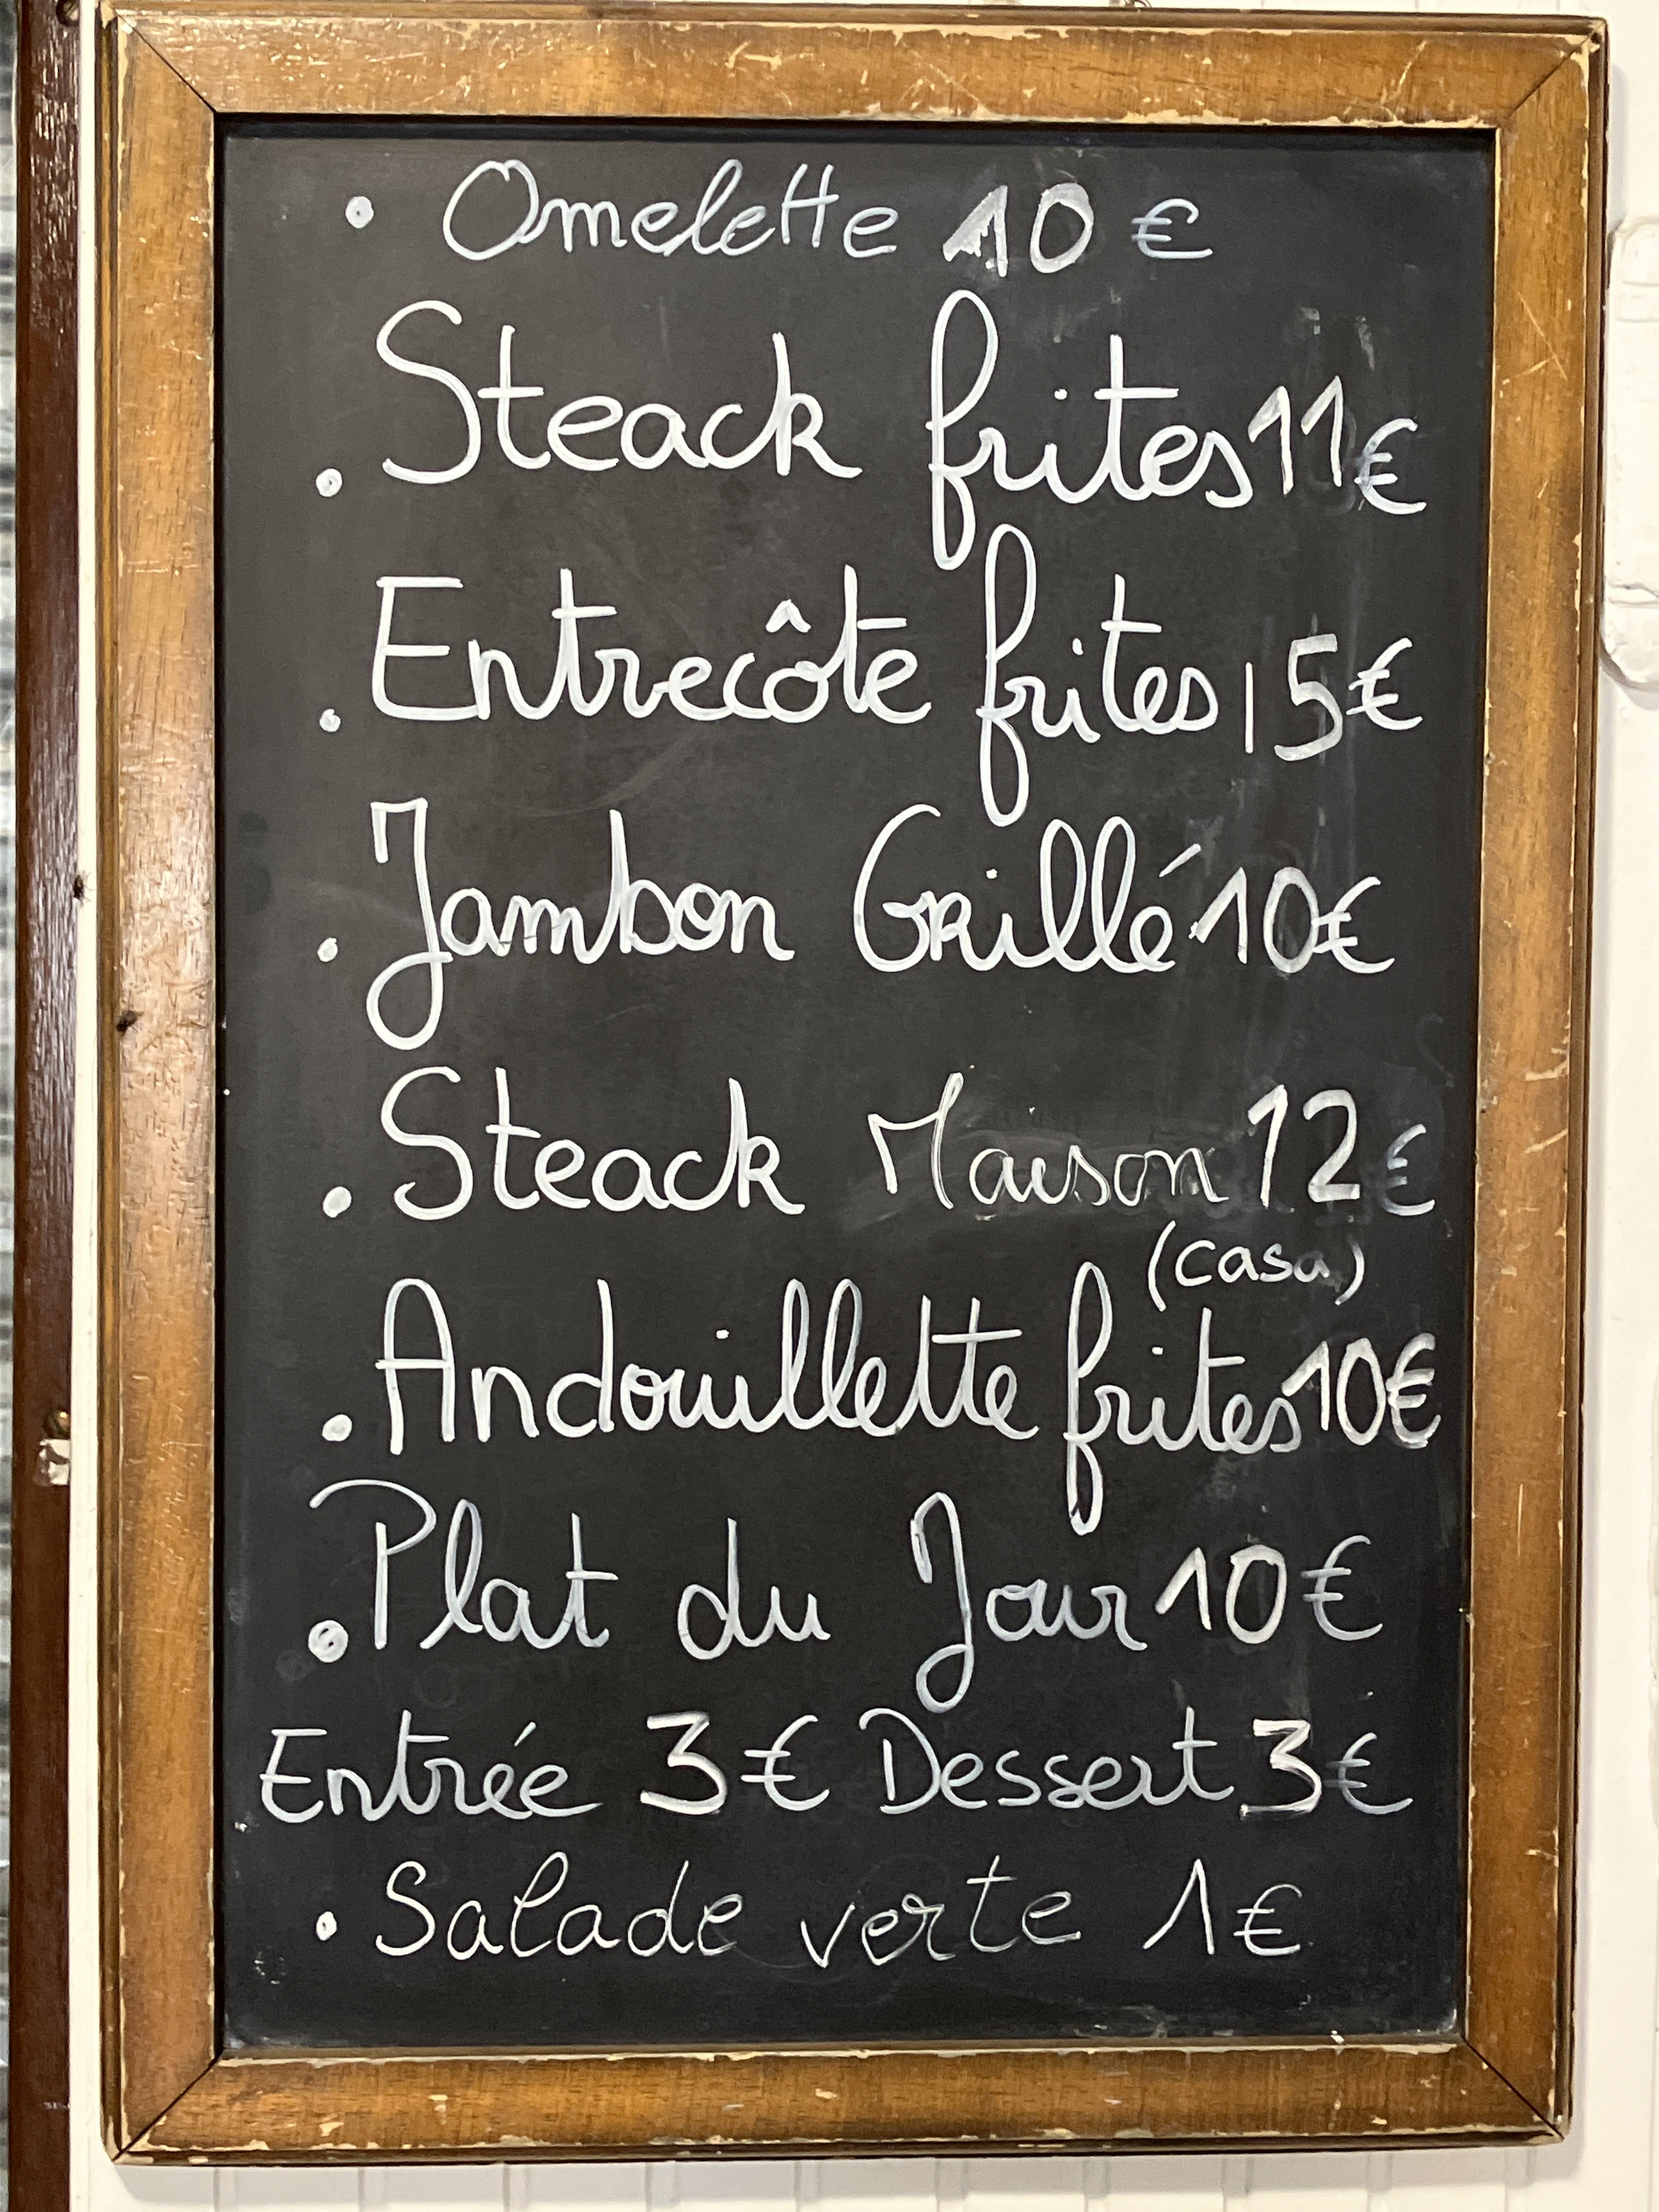 • Omelette 10 €
. Steack frites 11€
. Entrecôte frites 15€
. Jambon Grillé 10€
. Steack Maison 12€
(casa)
. Andouillette frites 10€
. Plat du Jour 10€
Entrée 3€ Dessert 3€
• Salade verte 1€